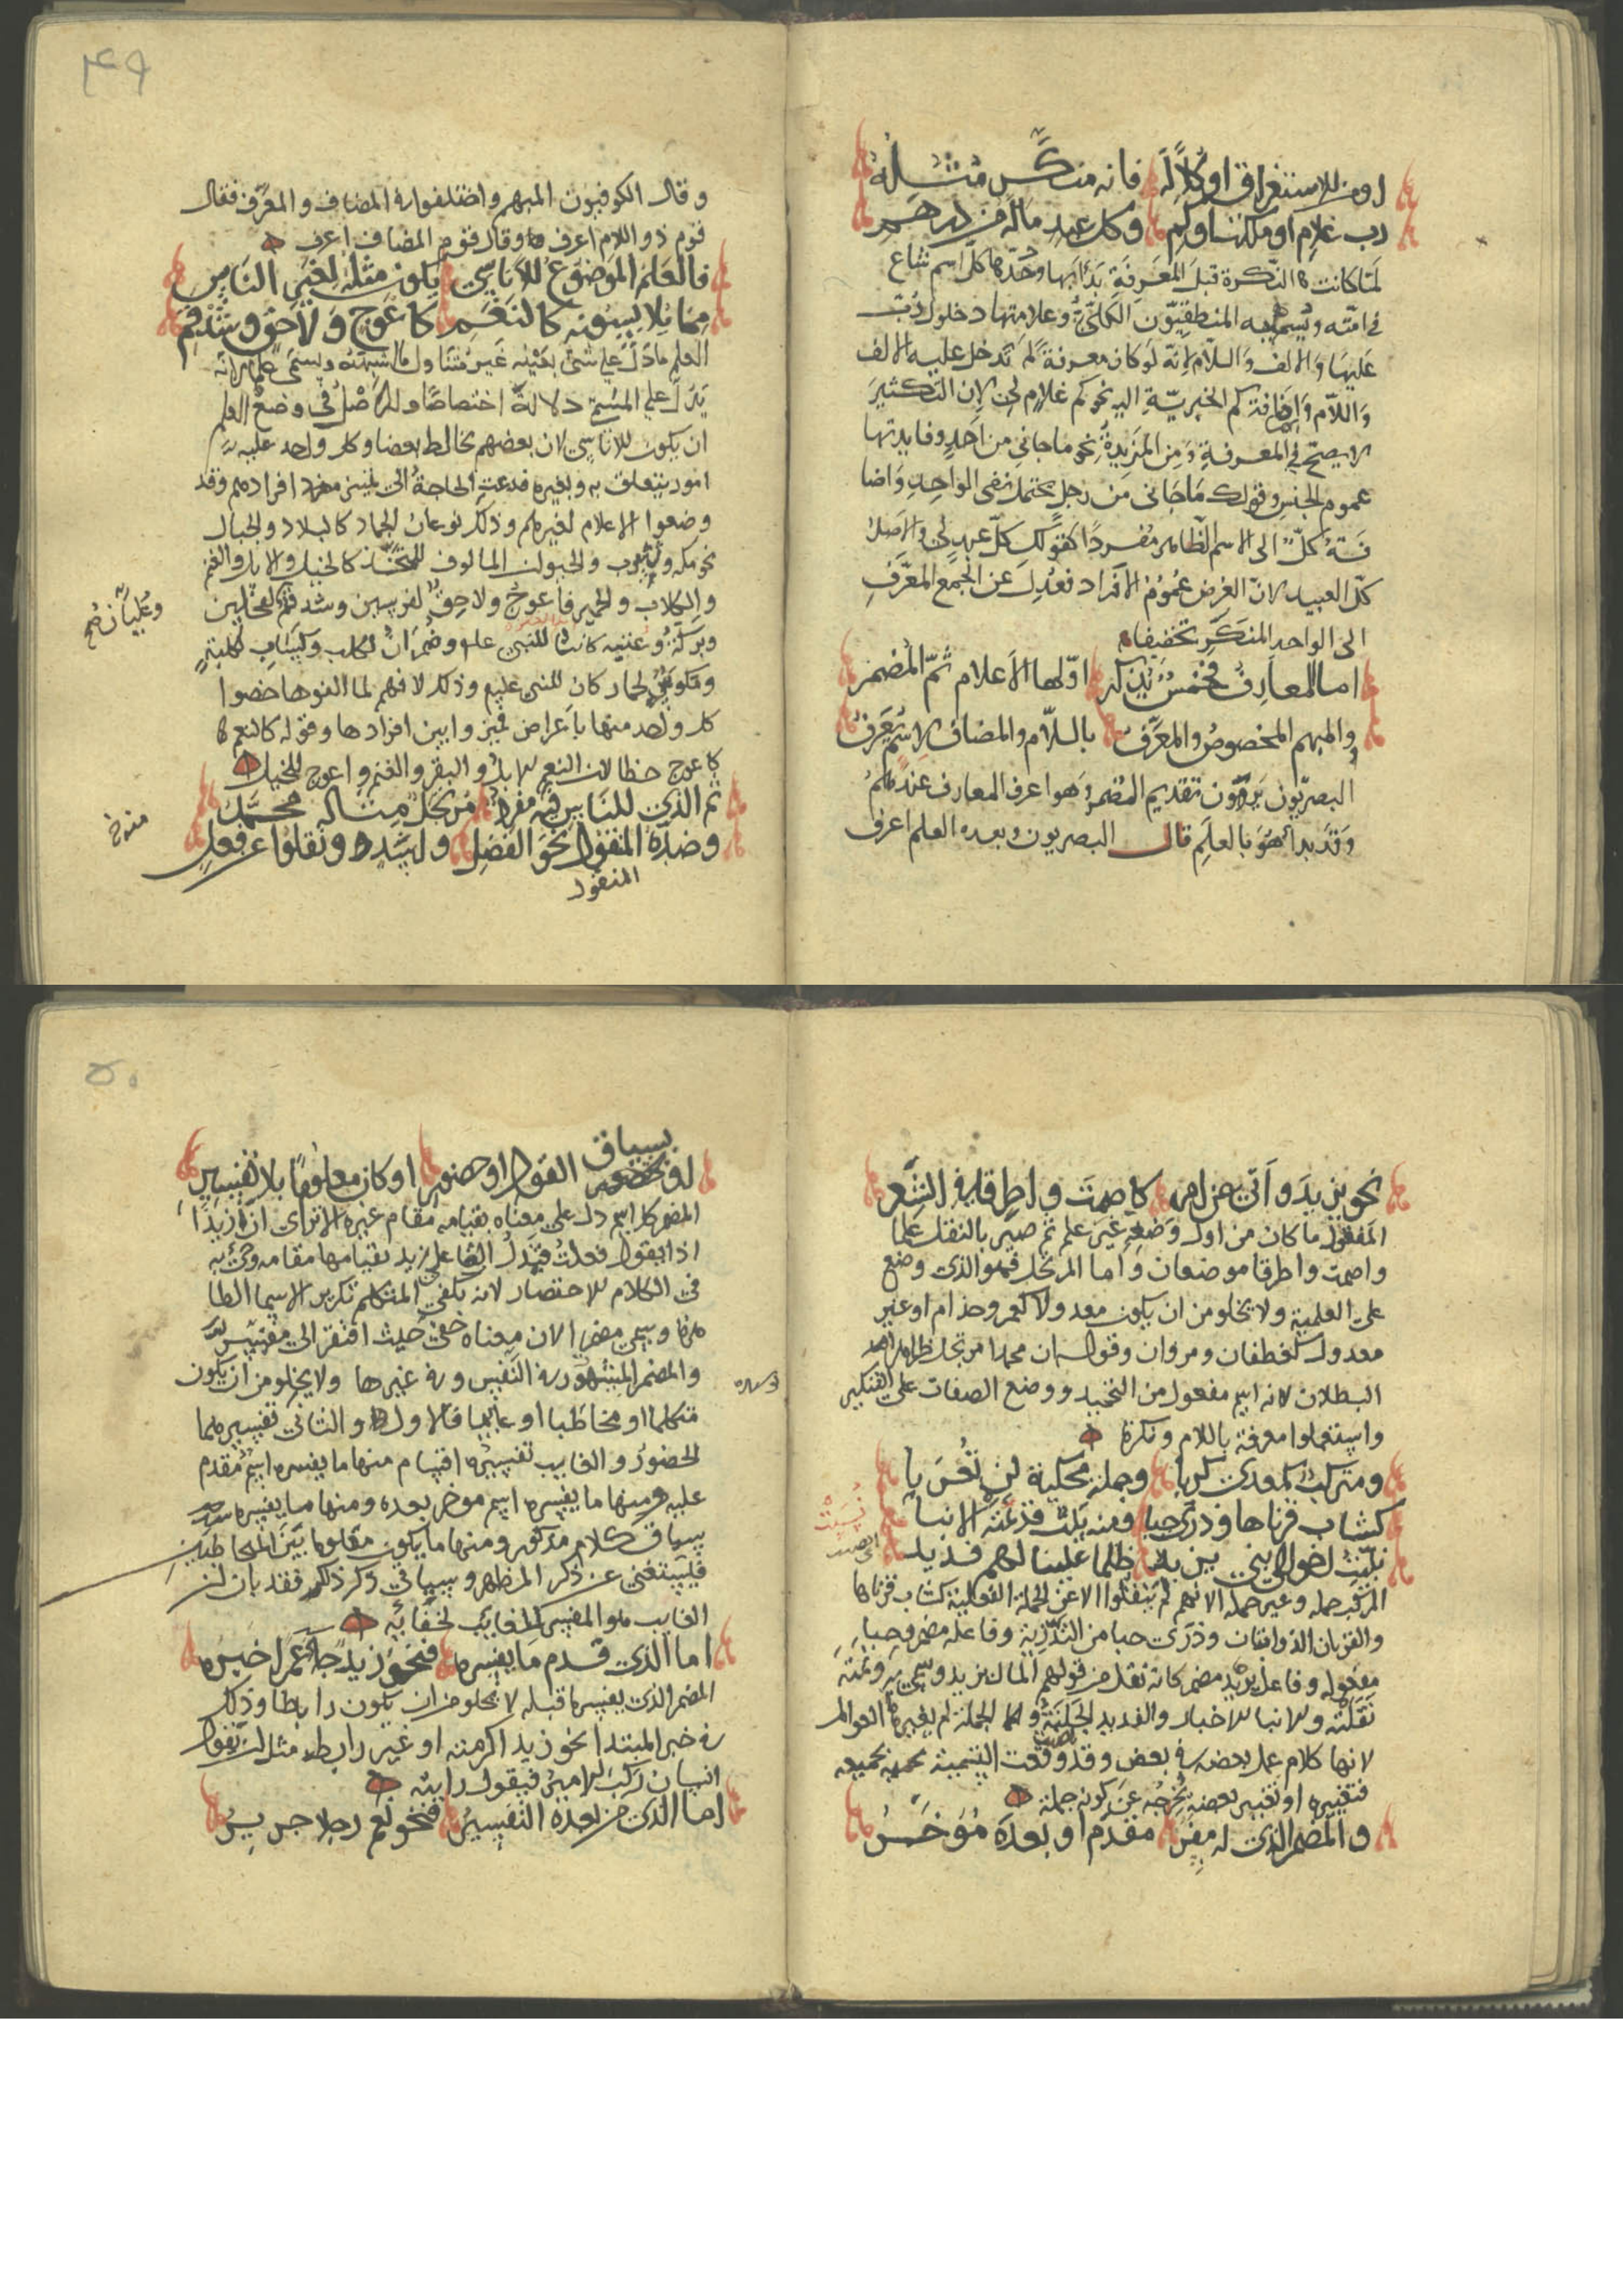 او من للاستغراق او كلا له فانه منكر مثله
رب غلام او ملكنا وكم وكل عبد ماله من درهم
لما كانت النكرة قبل المعرفة بدأ بها وحدها كل اسم شاع
في امته ويسميه المنطقيون الكلي وعلامتها دخول رب
عليها والالف واللام لانه لو كان معرفة لم تدخل عليه الالف
واللام واضافة كم الخبرية اليه نحو كم غلام لي لان التكثير
لا يصح في المعرفة ومن المزيدة نحو ما جاني من احد وفايدتها
عموم الجنس وقولك ما جاني من رجل يحتمل نفي الواحد واضا
فة كل الى الاسم الظاهر مفردا كقولك كل عبد لي والاصل
كل العبيد لان الغرض عموم الافراد فعدل عن الجمع المعرف
الى الواحد المنكر تخفيفا
اما المعارف فخمس تذكر اولها الاعلام ثم المضمر
والمبهم المخصوص والمعرف باللام والمضاف لاسم يعرف
البصريون يرون تقديم المضمر وهو اعرف المعارف عندهم
وقد بدأ هو بالعلم قال البصريون وبعده العلم اعرف
٤٩
وقال الكوفيون المبهم واختلفوا في المضاف والمعرف فقال
قوم ذو اللام اعرف وقال قوم المضاف اعرف
فالعلم الموضوع للاناسي يكون مثله لغير الناس
مما يلابسونه كالنعم كاعوج ولاحق وشدقم
العلم ما دل على شي بعينه غير متناول ما اشبهه ويسمى علما لانه
يدل على المسمى دلالة اختصاصا والاصل في وضع العلم
ان يكون للاناسي لان بعضهم يخالط بعضا وكل واحد عليه
امور يتعلق به وبغيره فدعت الحاجة الى تمييز افرادهم وقد
وضعوا الاعلام لغيرهم وذلك نوعان الجماد كالبلاد والجبال
نحو مكه ويثرب والحيوان المالوف المتخذ كالخيل والابل والغنم
والكلاب والحمير فاعوج ولاحق لفرسين وشدقم لفحلين
وعليان صح
وبركة وعنيه كانتا للنبي علم وضمران لكلب وكساب لكلبة
لحمار كان للنبي عليه وذلك لانهم لما الفوها خصوا
كل واحد منها باعراض تميز وا بين افرادها وقوله كالنعم
كاعوج خطا لان النعم الابل والبقر والغنم واعوج للخيل
ثم الذي للناس فيه مفرد مرتجل مثاله محمد
وضده المنقول نحو الفضل واسد ونقلوا عن فعل
المنقول
نحو يزيد واتى عن امر كاصمت واطرقا في الشعر
المنقول ما كان من اول وضعه غير علم ثم صير بالنقل علما
واصمت واطرقا موضعان واما المرتجل فهو الذي وضع
على العلمية ولا يخلو من ان يكون معدولا كعمر وحذام او غير
معدول كغطفان ومروان وقوله ان محمدا مرتجل ظاهر
البطلان لانه اسم مفعول من التحميد ووضع الصفات على التنكير
واستعملوا معرفة باللام ونكرة
ومركب كمعدي كربا وجملة محكية لن تعربا
كشاب قرناها وذرى حبا ومنه بيت قد نمته الانبا
نبئت اخوالي بني يزيد ظلما علينا لهم فديد
المركب جمله وغير جمله الا انهم لم ينقلوا الا عن الجملة الفعلية كشاب قرناها
والقرنان الذوابتان وذرى حبا من التذرية وفاعله مضمر وحبا
مفعوله وفاعل يزيد مضمر كانه نقل من قولهم المال يزيد وسمي به ونمته
نقلته والانبا الاخبار والفديد الجلبة والجملة لم يغيرها العوامل
لانها كلام عمل بعضه في بعض وقد وقعت التسمية بجميعه
فتغييره او تغيير بعضه يخرجه عن كونه جملة
والمضمر الذي له مفسر مقدم او بعده مؤخر
٥٠
بسياق
القول او حضور او كان معلوما بلا تفسير
المضمر كل اسم دل على معناه بقيامه مقام غيره الا ترى ان زيدا
اذا يقول فعلت فتدل التا على زيد بقيامها مقامه وجئ به
في الكلام للاختصار لانه يكفي المتكلم تكرير الاسما الظا
هرة وسمي مضمرا لان معناه خفي حيث افتقر الى مفسر
والمضمر المشهور في النفس وفي غيرها ولا يخلو من ان يكون
متكلما او مخاطبا او غايبا فالاول والثاني تفسيرهما
الحضور والغايب تفسيره اقسام منها ما يفسره اسم مقدم
عليه ومنها ما يفسره اسم موخر بعده ومنها ما يفسره
سياق كلام مذكور ومنها ما يكون معلوما بين المخاطبين
فيستغنى عن ذكر المظهر وسياتي ذكر ذلك فقد بان ان
الغايب هو المفسر كالغايب لخفائه
اما الذي قدم ما يفسره فنحو زيد جا عمرا خبره
المضمر الذي يفسره ما قبله لا يخلو من ان يكون رابطا وذلك
في خبر المبتدا نحو زيد اكرمته او غير رابط مثل ان يقول
انسان ركب الامير فيقول رايته
اما الذي من بعده التفسير فنحو نعم رجلا جرير